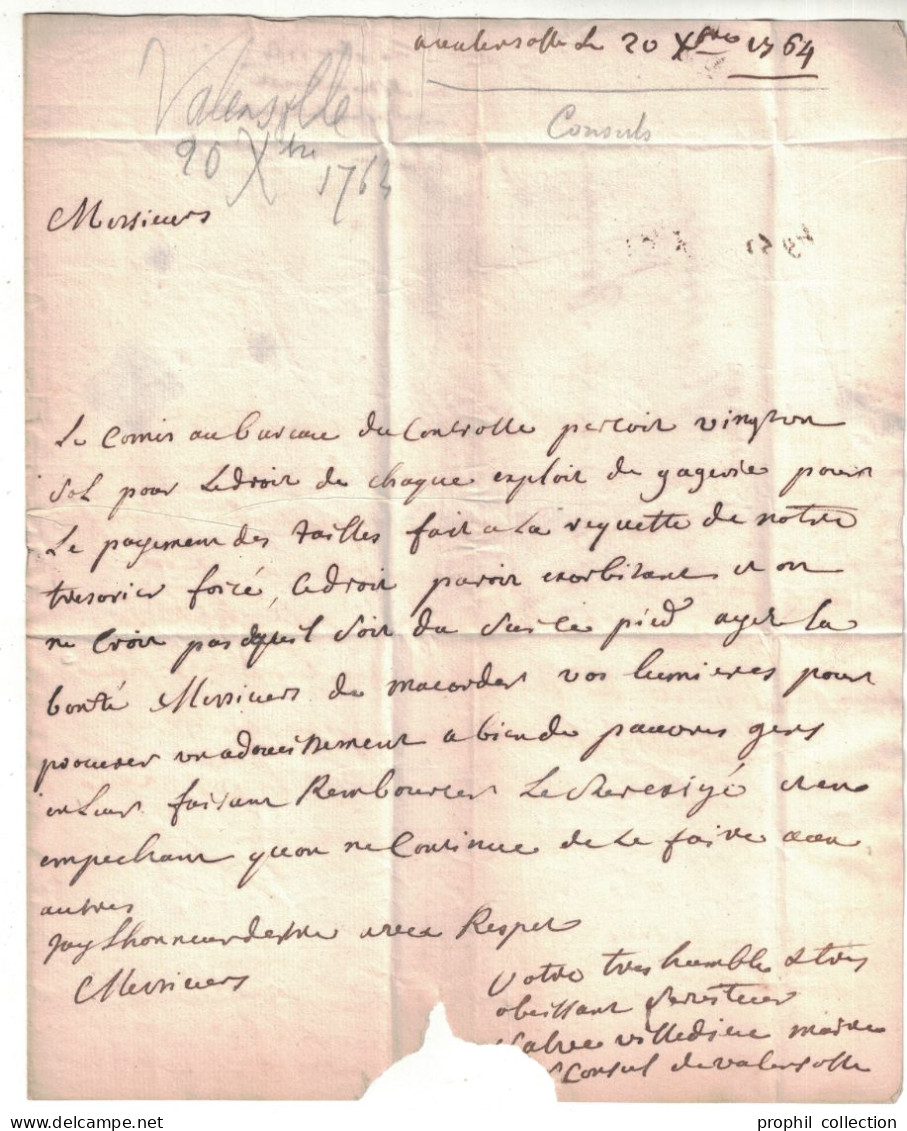 a valensolle Le 20 Xbre 1764
Valensolle
20 Xbre 1764
Consuls
Messieurs
Le Comis au bureau du Controlle percoit vingt
sol pour Le droit de chaque exploit de gagerie pour
Le payement des tailles fait a La requette de notre
tresorier forcé, Ce droit paroit exorbitant et on
ne Croit pas quil soit du sur Ce pied ayez La
bonté Messieurs de macorder vos lumieres pour
procurer un adoucissement a bien de pauvres gens
en Leur faisant Rembourser Le Surexigé et en
empechant quon ne Continue de Le faire aux
autres
Jay Lhonneur destre avec Respet
Messieurs
Votre tres humble et tres
obeissant serviteur
villedieu maire
Consul de valensolle
prophil collection